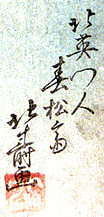 北英門人
春松斎
北寿画